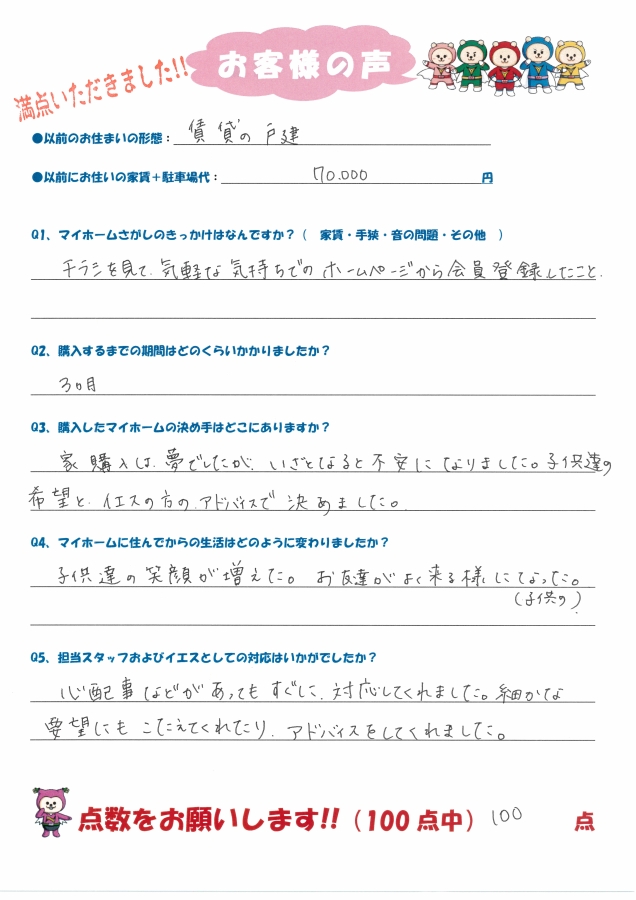 満点いただきました!!
お客様の声
●以前のお住まいの形態： 賃貸の戸建
●以前にお住いの家賃＋駐車場代： 70.000 円
Q1、マイホームさがしのきっかけはなんですか？（ 家賃・手狭・音の問題・その他 ）
チラシを見て、気軽な気持ちでのホームページから会員登録したこと.
Q2、購入するまでの期間はどのくらいかかりましたか？
3ヶ月
Q3、購入したマイホームの決め手はどこにありますか？
家購入は、夢でしたが、いざとなると不安になりました。子供達の
希望と、イエスの方の、アドバイスで決めました。
Q4、マイホームに住んでからの生活はどのように変わりましたか？
子供達の笑顔が増えた。お友達がよく来る様になった。
(子供の)
Q5、担当スタッフおよびイエスとしての対応はいかがでしたか？
心配事などがあってもすぐに、対応してくれました。細かな
要望にもこたえてくれたり、アドバイスをしてくれました。
点数をお願いします!!（100点中） 100 点